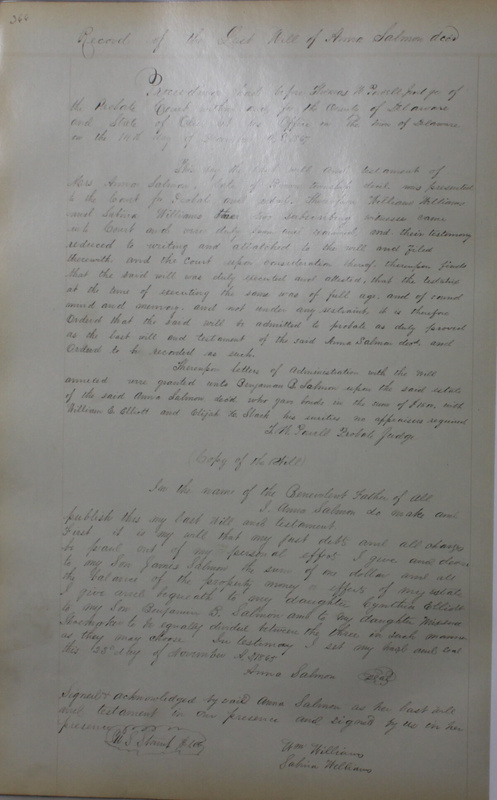 366
Record of the Last Will of Anna Salmon decd
Proceedings had before Thomas W. Powell judge of
the Probate Court within and for the County of Delaware
and State of Ohio at his Office in the Town of Delaware
on the 14th day of
This day the last will and testament of
Mrs Anna Salmon, late of township decd. was presented
to the Court for Probate and
and Sabina Williams two subscribing witnesses came
into Court and were duly and their testimony
reduced to writing and attatched to the will and filed
therewith, and the Court upon consideration thereof, thereupon finds
that the said will was duly executed and attested, that the testatrix
at the time of executing the same was of full age, and of sound
mind and memory, and not under any restraint, it is therefore
Ordered that the said will be admitted to probate as duly proved
as the last will and testament of the said Anna Salmon decd. and
Ordered to be recorded as such.
Thereupon letters of Administration with the will
annexed were granted unto Benjamin B. Salmon upon the said estate
of the said Anna Salmon decd who gave bonds in the sum of with
William C. Elliott and Elijah H. Slack his sureties no appraisers required
T. W. Powell Probate Judge
(Copy of the Will)
In the name of the Benevolent Father of All
I, Anna Salmon do make and
publish this my last Will and testament.
First it is my will that my just debts and all charges
be paid out of my personal effects I give and devise
to my Son James Salmon the sum of one dollar and all
thy balance of the property money or effects of my estate
I give and bequeath to my daughter Cynthia Elliott
to my Son Benjamin B. Salmon and to my daughter
to be equally divided between thy three in such manner
as they may chose. In testimony I set my hand and seal
this 23d day of November
Anna Salmon (Seal)
Signed & acknowledged by said Anna Salmon as her last will
and testament in our presence and signed by us in her
presence
Wm Williams
Sabina Williams